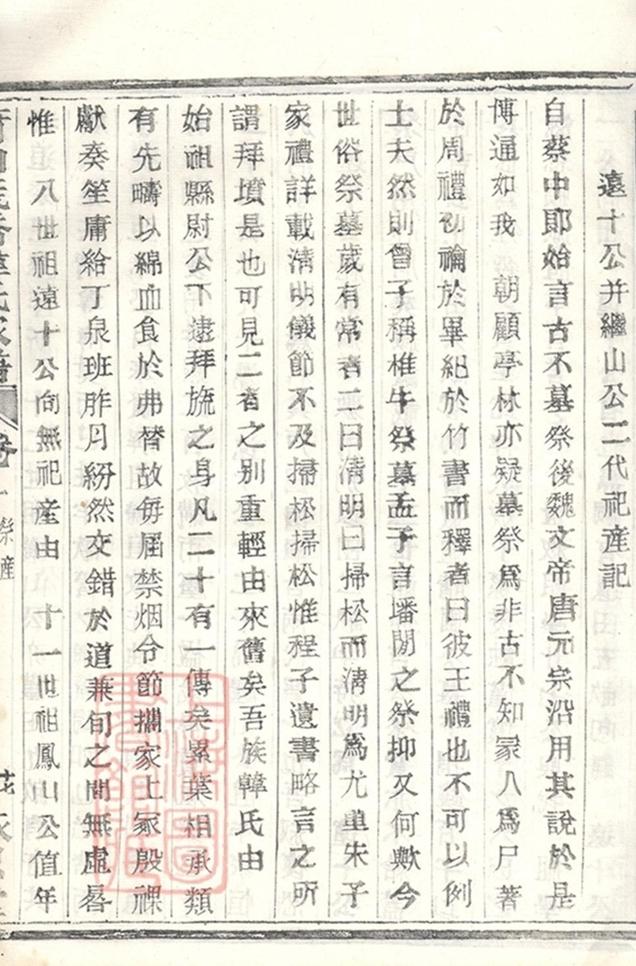 遠十公并繼山公二代祀產記
自蔡中郎始言古不墓祭後魏文帝唐元宗沿用其說於是
傳通如我　朝顧亭林亦疑墓祭爲非古不知冢人爲尸著
於周禮礿禴於畢紀於竹書而釋者曰彼王禮也不可以例
士大夫然則曾子稱椎牛祭墓孟子言墦閒之祭抑又何歟今
世俗祭墓歲有常者二曰清明曰掃松而清明爲尤重朱子
家禮詳載清明儀節不及掃松掃松惟程子遺書略言之所
謂拜墳是也可見二者之別重輕由來舊矣吾族韓氏由
始祖縣尉公下逮拜旒之身凡二十有一傳矣累葉相承類
有先疇以綿血食於弗替故每屆禁烟令節攜家上冢殷祼
獻奏笙庸給丁泉班胙月紛然交錯於道兼旬之間無虛晷
惟　八世祖遠十公向無祀產由　十一世祖鳳山公值年
氏家譜
卷一
祭產